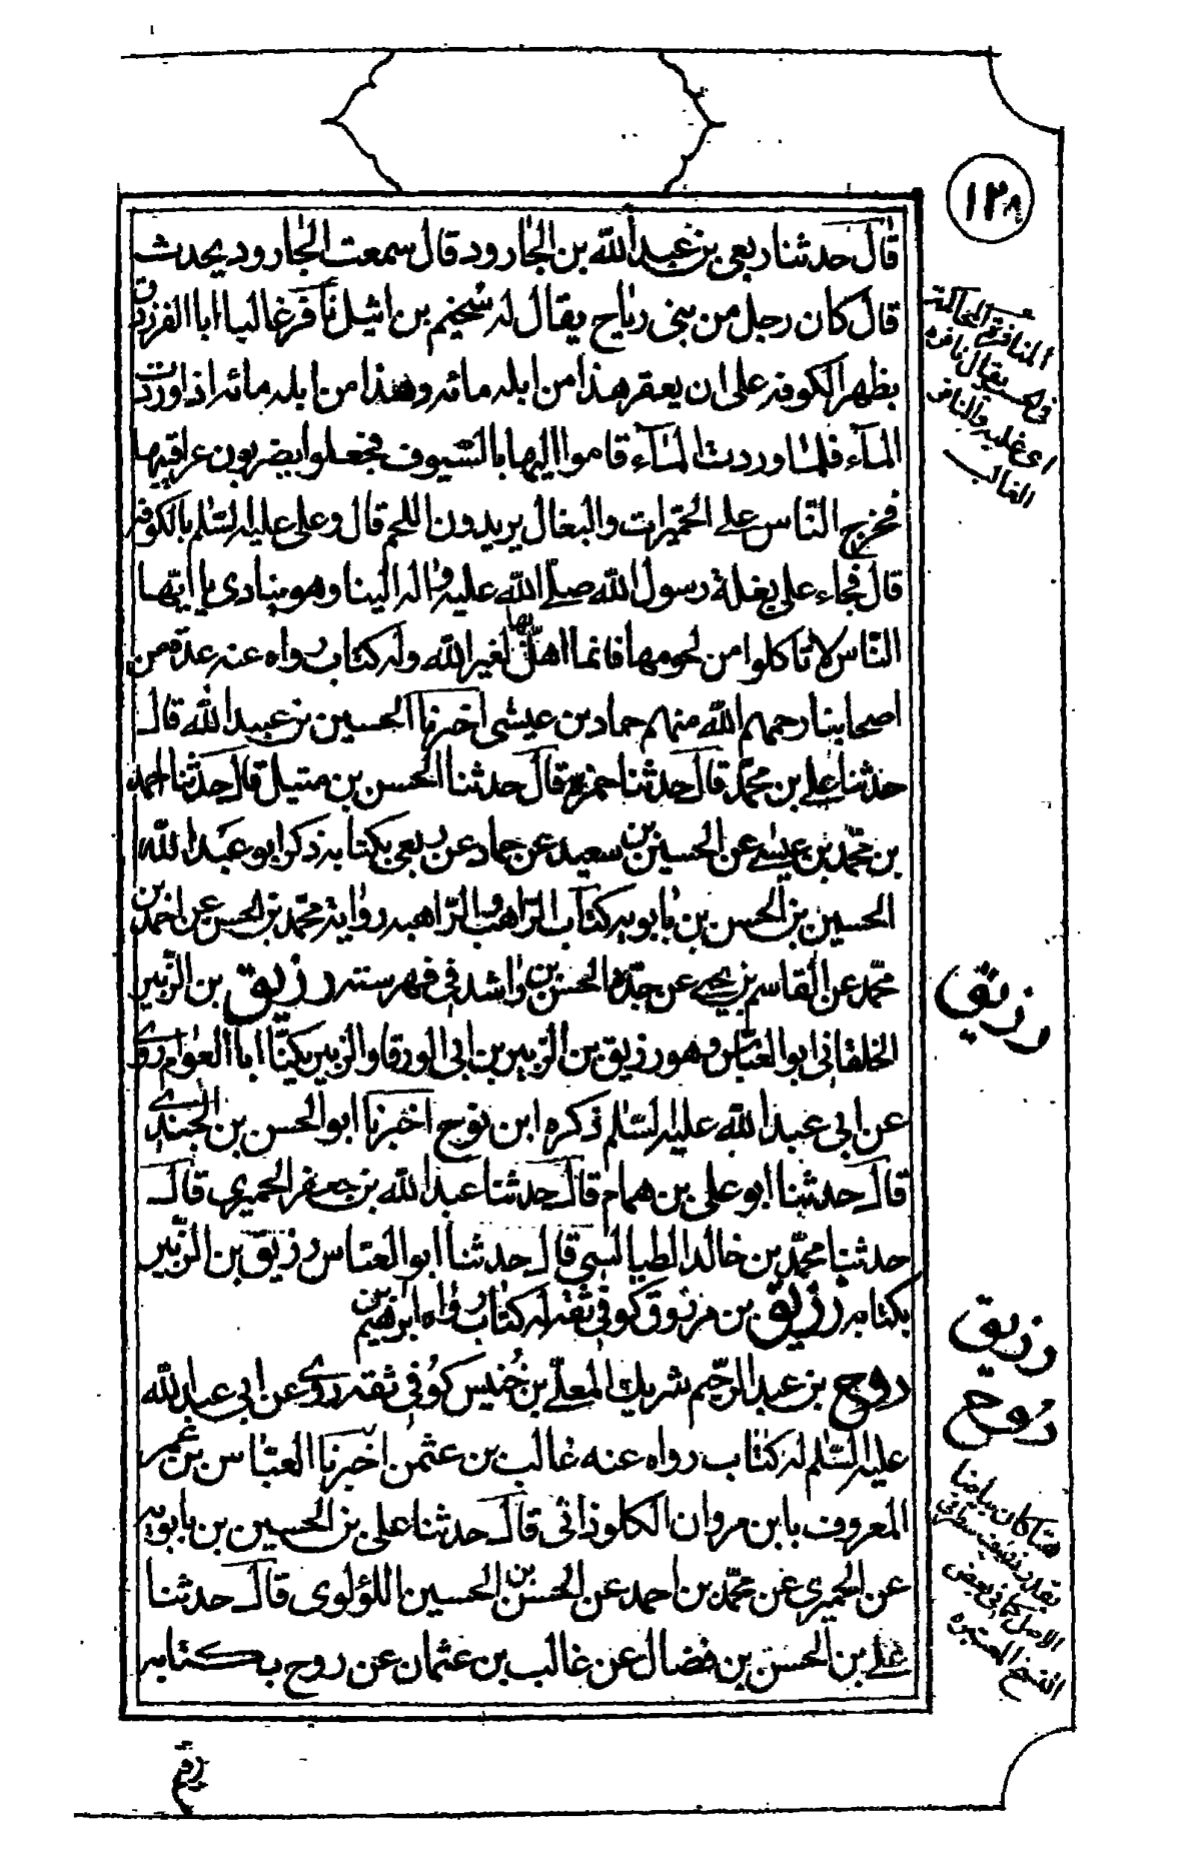 ١٢٨
قال حدثنا ربعي بن عبد الله بن الجارود قال سمعت الجارود يحدث
قال كان رجل من بني رياح يقال له سُحيم بن اثيل نافر غالبا ابا الفرزدق
بظهر الكوفه على ان يعقر هذا من ابله مائه وهذا من ابله مائه اذا وردت
المآء فلما وردت المآء قاموا اليها بالسّيوف فجعلوا يضربون عراقيبها
فخرج النّاس على الحميرات والبغال يريدون اللحم قال وعلى عليه السّلم بالكوفه
قال فجاء على بغلة رسول الله صلّى الله عليه واله الينا وهو ينادى يا ايّها
النّاس لا تاكلوا من لحومها فانما اهلّ بها لغير الله وله كتاب رواه عنه عدّة من
اصحابنا رحمهم الله منهم حماد بن عيسى اخبرنا الحسين بن عبيد الله قال
حدثنا على بن محمّد قال حدثنا حمزه قال حدثنا الحسن بن متيل قال حدثنا احمد
بن محمّد بن عيسى عن الحسين بن سعيد عن حماد عن ربعى بكتابه ذكر ابو عبد الله
الحسين بن الحسن بن بابويه كتاب الرّاهب والرّاهبه رواية محمّد بن الحسن عن احمد بن
محمّد عن القاسم بن يحيى عن جدّه الحسن بن راشد في فهرسته رزيق بن الزّبير
الخلقانى ابو العبّاس وهو رزيق بن الزّبير بن ابى الورقا والزبير يكنّا ابا العوام روى
عن ابى عبد الله عليه السّلم ذكره ابن نوح اخبرنا ابو الحسن بن الجندى
قال حدثنا ابو على بن همام قال حدثنا عبد الله بن جعفر الحميرى قال
حدثنا محمّد بن خالد الطيالسى قال حدثنا ابو العبّاس رزيق بن الزّبير
بكتابه رزيق بن مرزوق كوفى ثقه له كتاب رواه ابرٰهيم بن
روح بن عبد الرّحيم شريك المعلّى بن خُنيس كوُفى ثقه روى عن ابى عبد الله
عليه السّلم له كتاب رواه عنه غالب بن عثمٰن اخبرنا العبّاس بن عمر
المعروف بابن مروان الكلوذانى قال حدثنا على بن الحسين بن بابويه
عن الحميرى عن محمّد بن احمد عن الحسن بن الحسين اللؤلوى قال حدثنا
على بن الحسن بن فضال عن غالب بن عثمان عن روح بكتابه
المنافرة المحاكمة
في يقال نافره
اى غلبه والنافر
الغالب
رزيق
رزيق
رُوح
هنا كان بياضا
بقدر نصف سطر في
الاصل كما في بعض
النسخ المعتبره
رقم